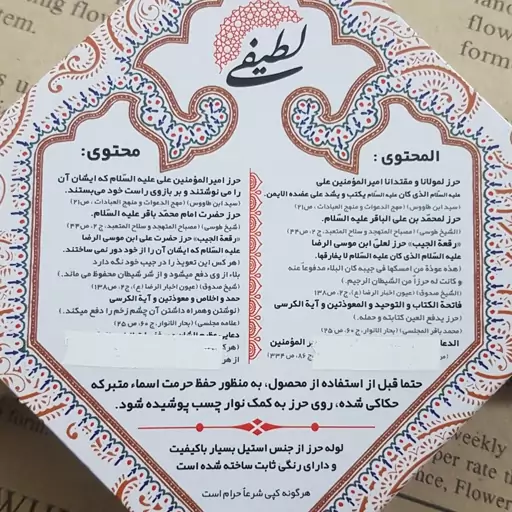 لطیفی
المحتوی :
حرز لمولانا و مقتدانا امیرالمؤمنین علی
علیه السّلام الذی کان علیه السّلام یکتب و یشد علی عضده الایمن.
(سید ابن طاووس) (مهج الدعوات و منهج العبادات ، ص۲۱)
حرز لمحمد بن علی الباقر علیه السّلام.
(الشیخ طوسی) (مصباح المتهجد و سلاح المتعبد، ج ۲، ص۴۴)
«رقعة الجیب» حرز لعلی ابن موسی الرضا
علیه السّلام الذی کان علیه السّلام لا یفارقها.
(هذه عوذة من امسکها فی جیبه کان البلاء مدفوعاً عنه
و کانت له حرزاً من الشیطان الرجیم.)
(الشیخ صدوق) (عیون اخبار الرضا ع)، ج۲، ص۱۳۸)
فاتحة الکتاب و التوحید و المعوذتین و آیة الکرسی
(حرز یدفع العین کتابته و حمله.)
(محمد باقر المجلسی) (بحار الانوار، ج ۶۰، ص ۲۵)
الدعا
المؤمنین
ج ۸۶، ص ۳۳۴)
محتوی:
حرز امیرالمؤمنین علی علیه السّلام که ایشان آن
را می نوشتند و بر بازوی راست خود می‌بستند.
(سید ابن طاووس) (مهج الدعوات و منهج العبادات ، ص۲۱)
حرز حضرت امام محمد باقر علیه السّلام.
(شیخ طوسی) (مصباح المتهجد و سلاح المتعبد، ج ۲، ص۴۴)
«رقعة الجیب» حرز حضرت علی ابن موسی الرضا
علیه السّلام که ایشان آن را از خود دور نمی ساختند.
(هرکس این تعویذ را در جیب خود نگه دارد
بلاء از وی دفع میشود و از شر شیطان محفوظ می ماند.)
(شیخ صدوق) (عیون اخبار الرضا (ع)، ج۲، ص۱۳۸)
حمد و اخلاص و معوذتین و آیة الکرسی
(نوشتن وهمراه داشتن آن چشم زخم را دفع میکند.)
(علامه مجلسی) (بحار الانوار، ج ۶۰، ص ۲۵)
(هر
از هر
حتما قبل از استفاده از محصول، به منظور حفظ حرمت اسماء متبرکه
حکاکی شده، روی حرز به کمک نوار چسب پوشیده شود.
لوله حرز از جنس استیل بسیار باکیفیت
و دارای رنگی ثابت ساخته شده است
هرگونه کپی شرعاً حرام است
flow
form
weekly
per rate th
ence, Flower